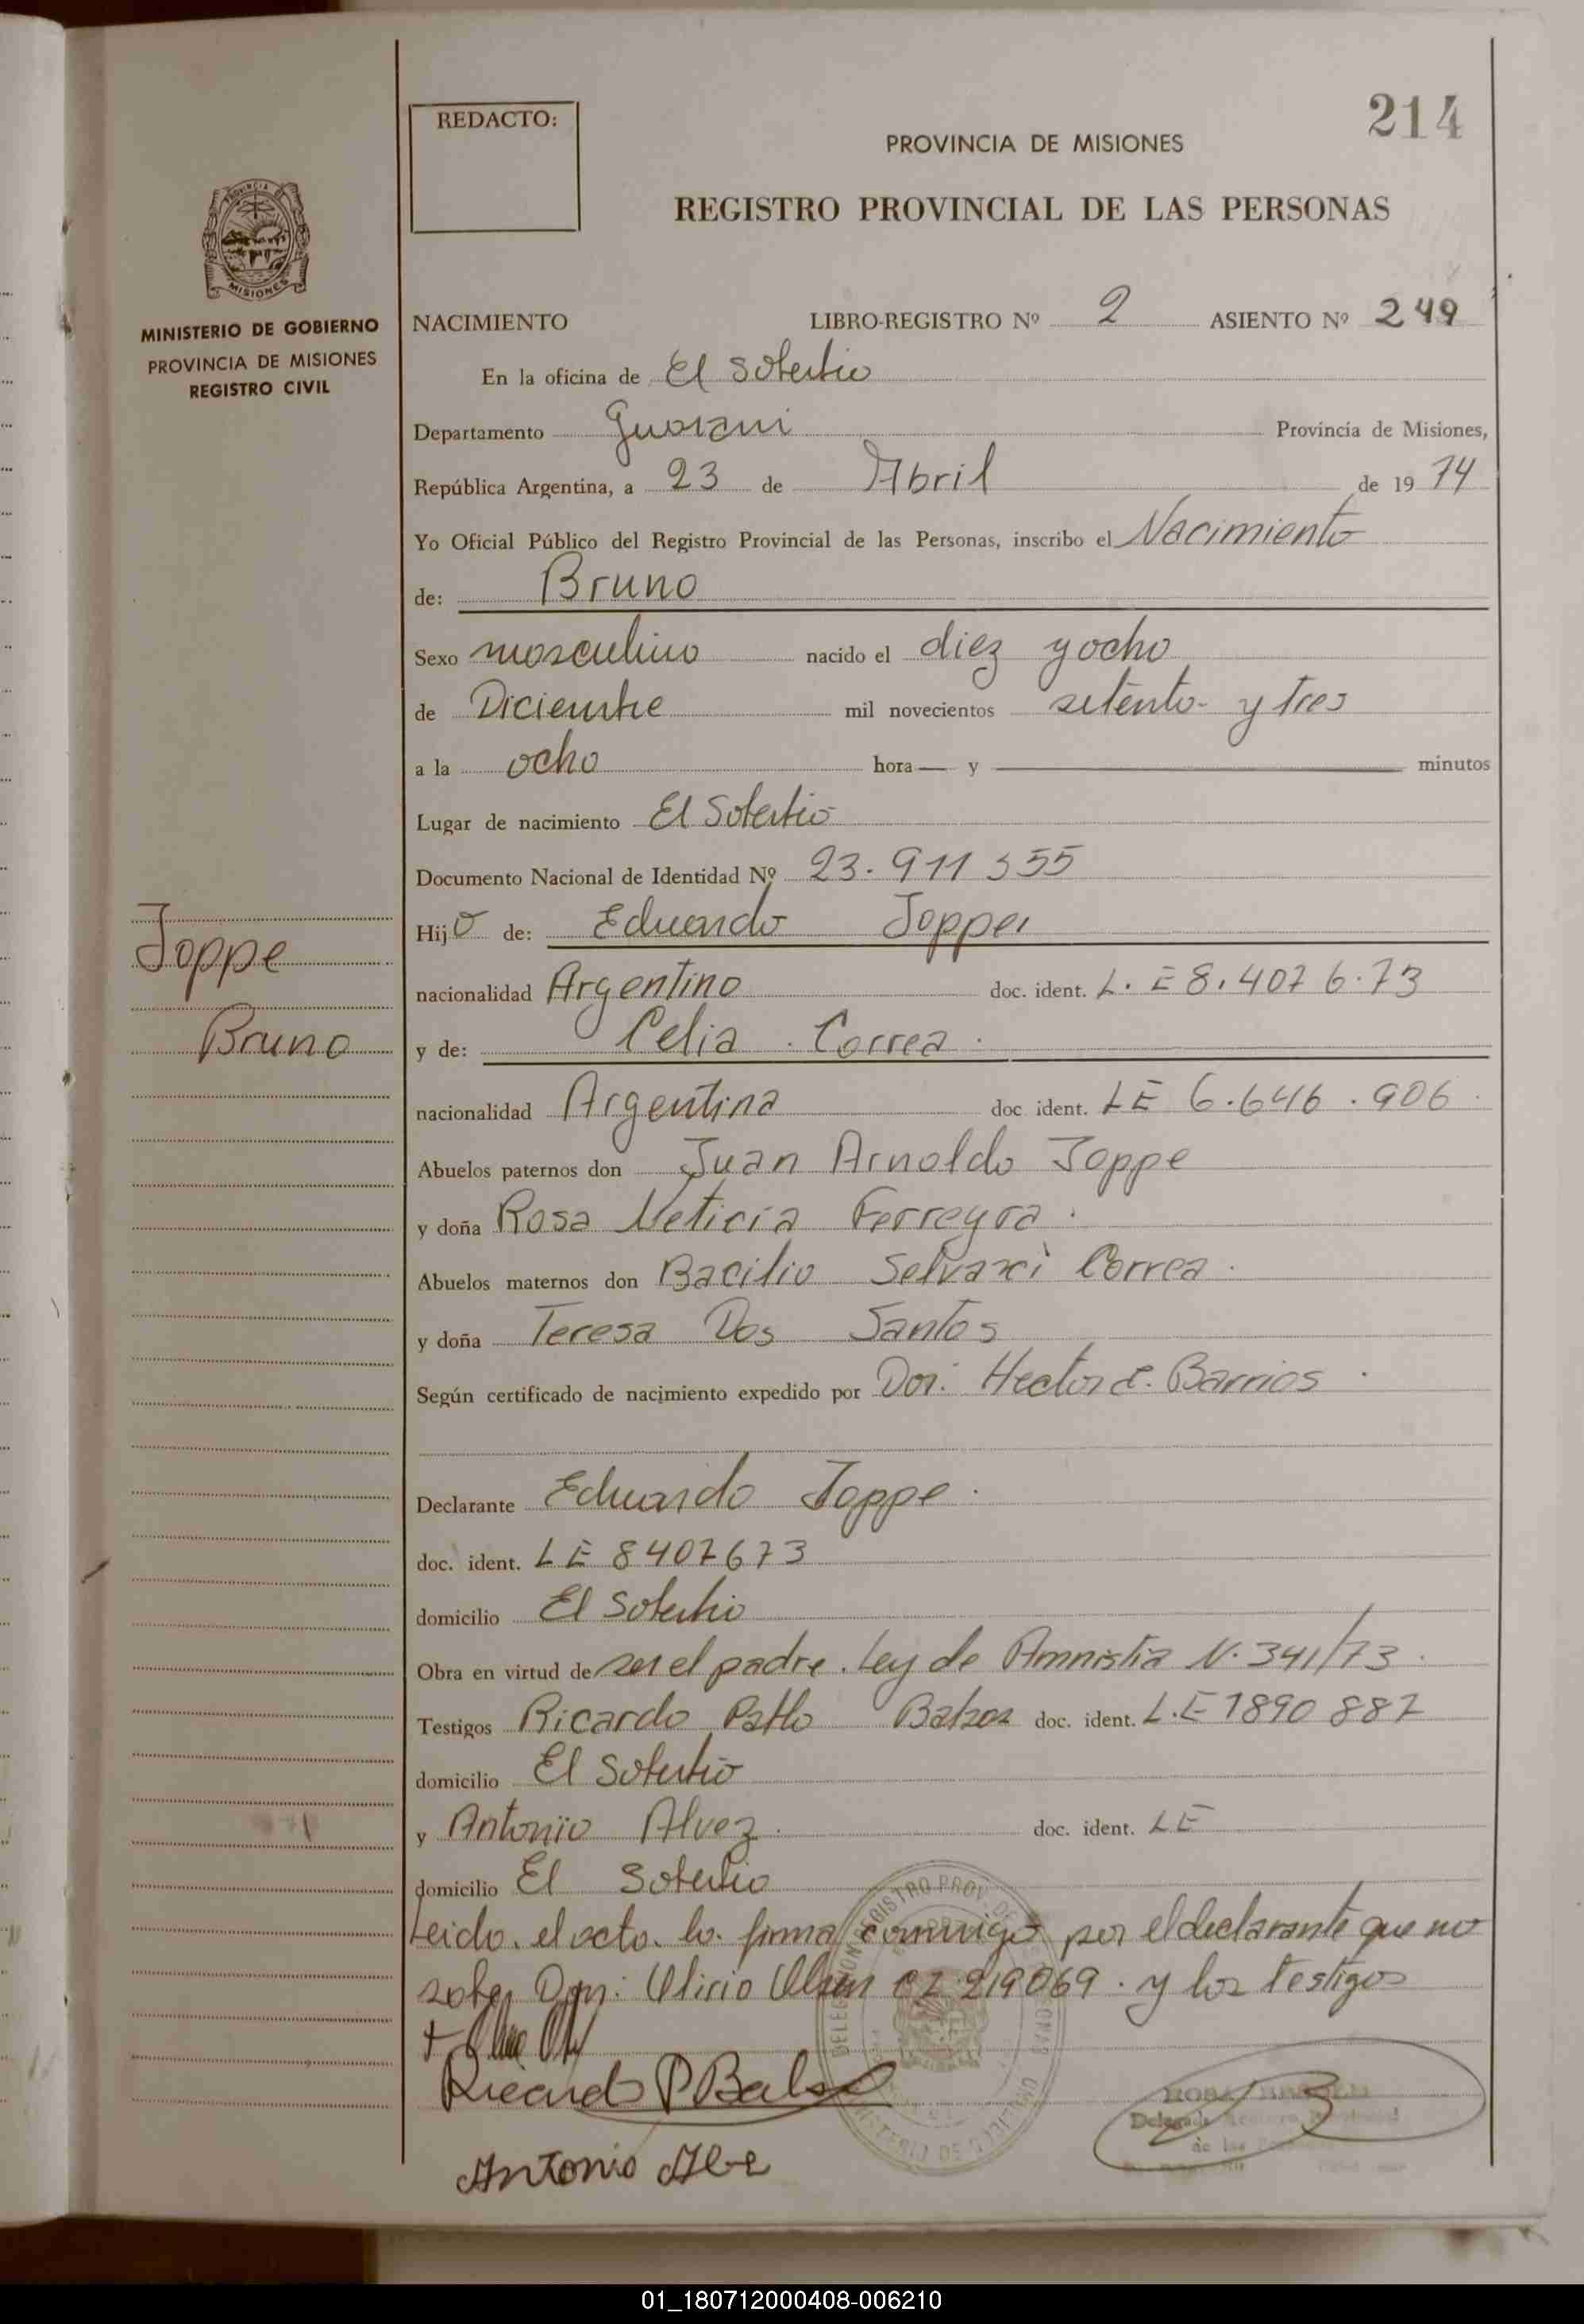 214
REDACTO:
PROVINCIA DE MISIONES
REGISTRO PROVINCIAL DE LAS PERSONAS
PROVINCIA DE
MISIONES
MINISTERIO DE GOBIERNO
PROVINCIA DE MISIONES
REGISTRO CIVIL
NACIMIENTO LIBRO-REGISTRO Nº 2 ASIENTO Nº 249
En la oficina de El Soberbio
Departamento Guarani Provincia de Misiones,
República Argentina, a 23 de Abril de 19 74
Yo Oficial Público del Registro Provincial de las Personas, inscribo el Nacimiento
de: Bruno
Sexo masculino nacido el diez y ocho
de Diciembre mil novecientos setenta y tres
a la ocho hora — y — minutos
Lugar de nacimiento El Soberbio
Documento Nacional de Identidad Nº 23.911 355
Joppe
Bruno
Hijo de: Eduardo Joppe
nacionalidad Argentino doc. ident. L. E 8.407 6.73
y de: Celia Correa
nacionalidad Argentina doc. ident. LE 6.646.906
Abuelos paternos don Juan Arnoldo Joppe
y doña Rosa Leticia Ferreyra
Abuelos maternos don Bacilio Correa
y doña Teresa Dos Santos
Según certificado de nacimiento expedido por Don: Hector E. Barrios
Declarante Eduardo Joppe
doc. ident. LE 8407673
domicilio El Soberbio
Obra en virtud de ser el padre. Ley de Amnistia N. 341/73
Testigos Ricardo Pablo doc. ident. L.E 7890 887
domicilio El Soberbio
y Antonio Alvez doc. ident. LE
domicilio El Soberbio
Leida el acta la firma conmigo por el declarante que no
sabe, Don: Olirio CI 219069. y los testigos
Ricardo P
Antonio
01_180712000408-006210